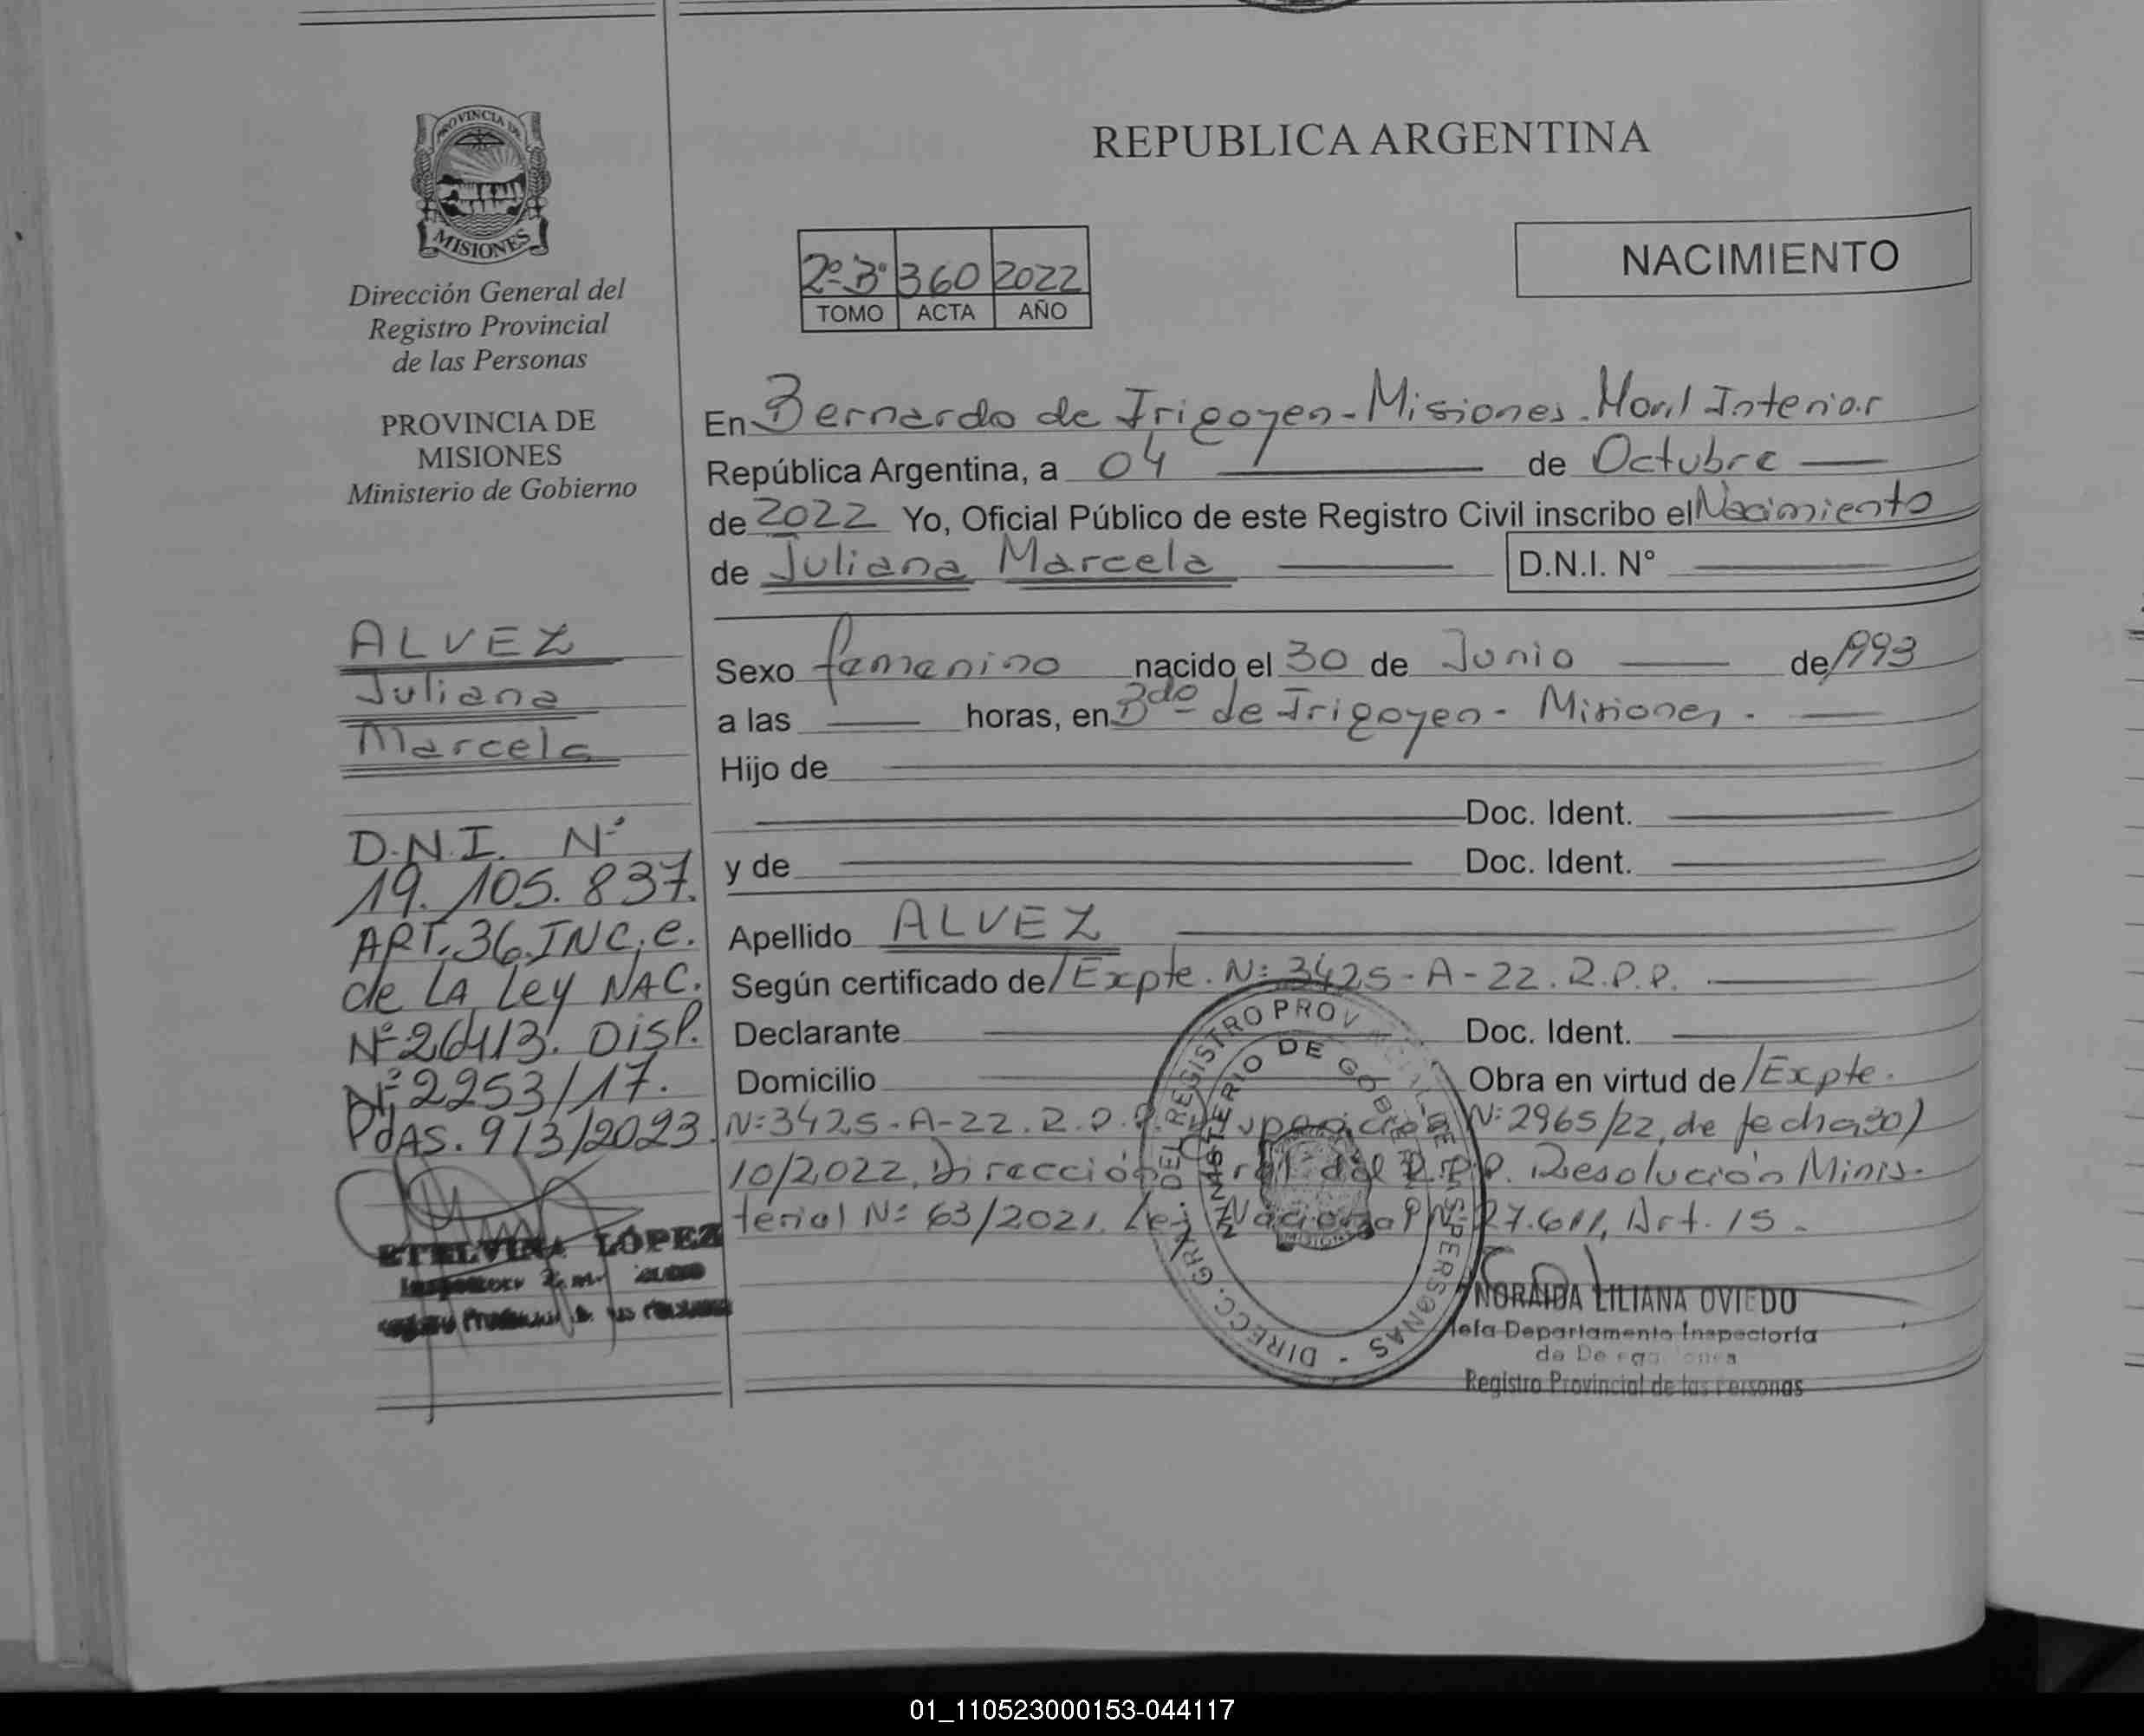 REPUBLICA ARGENTINA
PROVINCIA DE
MISIONES
Dirección General del
Registro Provincial
de las Personas
PROVINCIA DE
MISIONES
Ministerio de Gobierno
ALVEZ
Juliana
Marcela
D.N.I. Nº
19.105.837.
ART. 36. INC. e.
de LA Ley NAC.
Nº 26413. DISP.
Nº 2253/17.
PdAS. 9/3/2023.
ETELVINA LÓPEZ
2º-3º 360 2022
TOMO ACTA AÑO
NACIMIENTO
En Bernardo de Irigoyen - Misiones. Movil Interior
República Argentina, a 04 de Octubre
de 2022 Yo, Oficial Público de este Registro Civil inscribo el Nacimiento
de Juliana Marcela D.N.I. N°
Sexo femenino nacido el 30 de Junio de 1993
a las horas, en Bdo de Irigoyen - Misiones.
Hijo de
Doc. Ident.
y de Doc. Ident.
Apellido ALVEZ
Según certificado de/Expte. Nº 3425-A-22. R.P.P.
Declarante Doc. Ident.
Domicilio Obra en virtud de/Expte.
Nº 3425-A-22. R.P.P. Nº 2965/22, de fecha
10/2022, Dirección Gral. del R.P.P. Resolución Minis-
terial Nº 63/2021. Ley Nacional Nº 27.611, Art. 15.
DIRECC. GRAL. DEL REGISTRO PROVINCIAL DE LAS PERSONAS -
MINISTERIO DE GOBIERNO
NORAIDA LILIANA OVIEDO
Jefa Departamento Inspectoría
de Delegaciones
Registro Provincial de las Personas
01_110523000153-044117